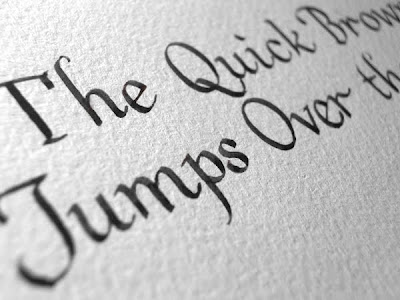 The Quick Brown
Jumps Over th